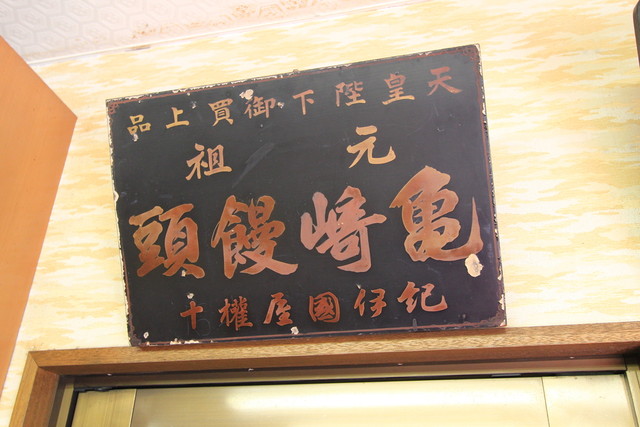 天皇陛下御買上品
元祖
亀崎饅頭
紀伊國屋權十